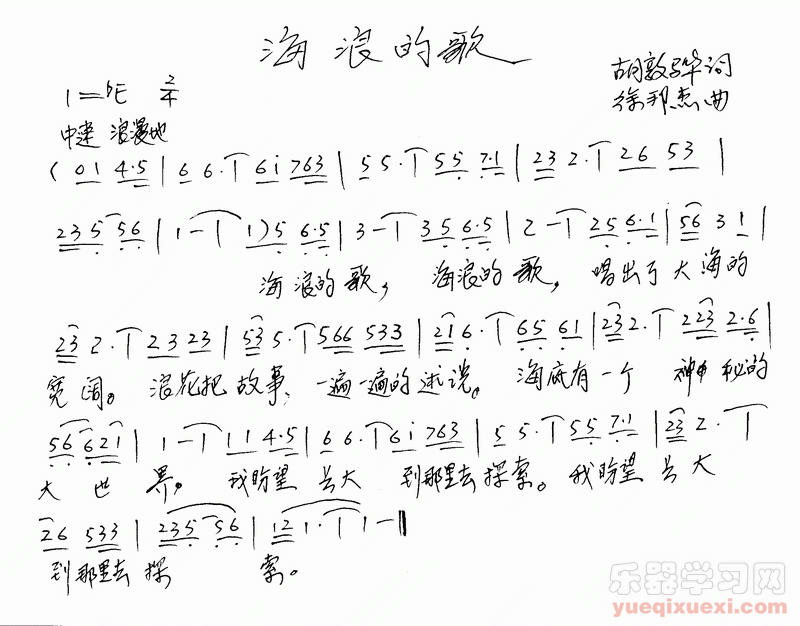 海浪的歌
1=bE 2/4
胡敦骅词
徐邦杰曲
中速 浪漫地
(01 4·5 | 6 6· 6i 763 | 5 5· 55 7·1 | 23 2· 26 53 |
235 56 | 1 - 1)5 6·5 | 3 - 35 6·5 | 2 - 25 6·1 | 56 3 1 |
海浪的歌, 海浪的歌, 唱出了大海的
23 2· 23 23 | 53 5· 566 533 | 21 6· 65 61 | 23 2· 223 2·6 |
宽阔。浪花把故事, 一遍一遍的述说。海底有一个 神秘的
56 621 | 1 - 11 4·5 | 6 6· 6i 763 | 5 5· 55 7·1 | 23 2·
大世界, 我盼望长大 到那里去探索。我盼望长大
26 533 | 235 56 | 12 1· 1 - ‖
到那里去探 索。
乐器学习网
yueqixuexi.com